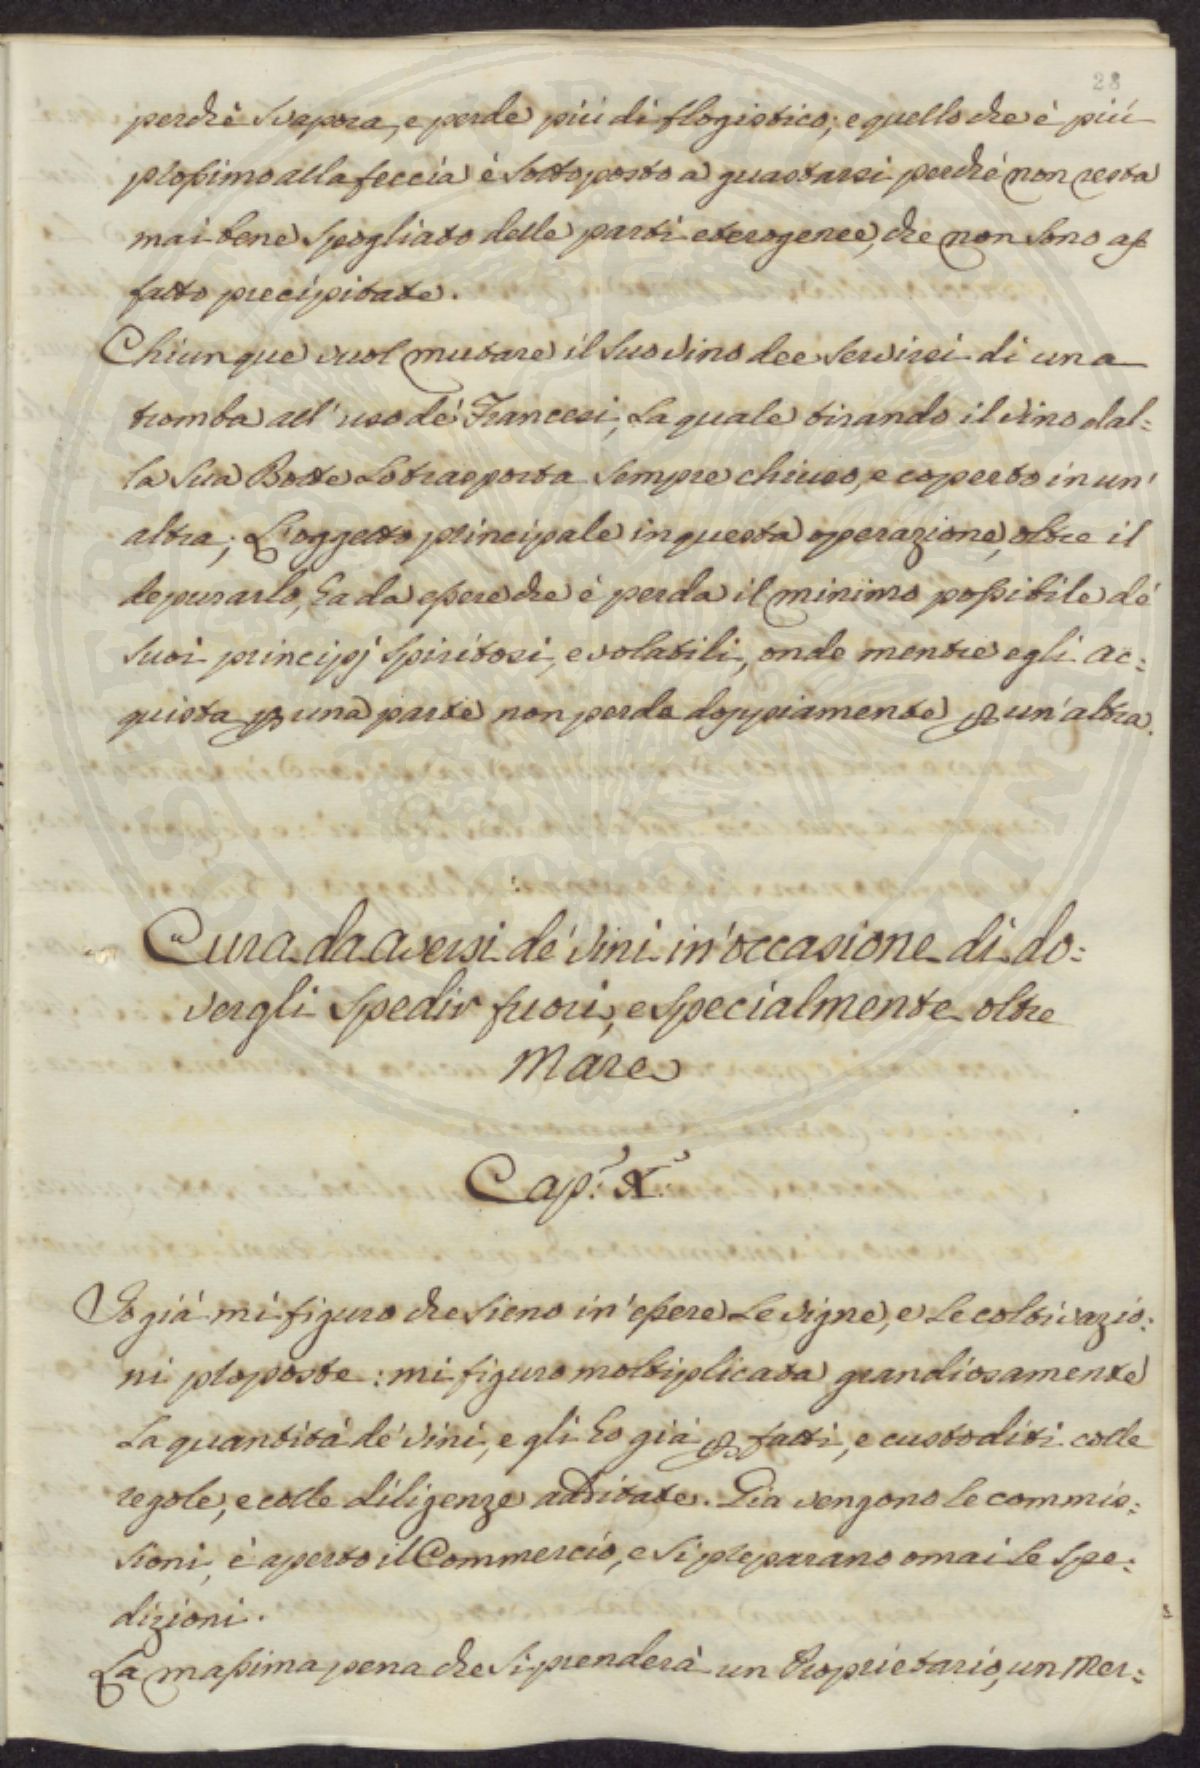 28
perchè svapora, e perde più di flogistico; e quello che è più
prossimo alla feccia è sottoposto a guastarsi perchè non resta
mai bene spogliato delle parti eterogenee, che non sono af
fatto precipitate.
Chiunque vuol mutare il suo vino dee servirsi di una
tromba all'uso de' Francesi, la quale tirando il vino dal=
la sua Botte lo trasporta sempre chiuso, e coperto in un'
altra; L'oggetto principale in questa operazione, oltre il
depurarlo, ha da essere che è perda il minimo possibile de'
suoi principj spiritosi, e volatili, onde mentre egli ac=
quista p una parte non perda doppiamente p un'altra.
Cura da aversi de' vini in' occasione di do=
vergli spedir fuori, e specialmente oltre
Mare
Cap: X.
Io già mi figuro che sieno in' essere le vigne, e le coltivazio=
ni proposte: mi figuro moltiplicata grandiosamente
la quantità de' vini, e gli ho già p fatti, e custoditi colle
regole, e colle diligenze additate. Già vengono le commis=
sioni, è aperto il Commercio, e si preparano omai le spe=
dizioni.
La massima pena che si prenderà un Proprietario, un Mer=